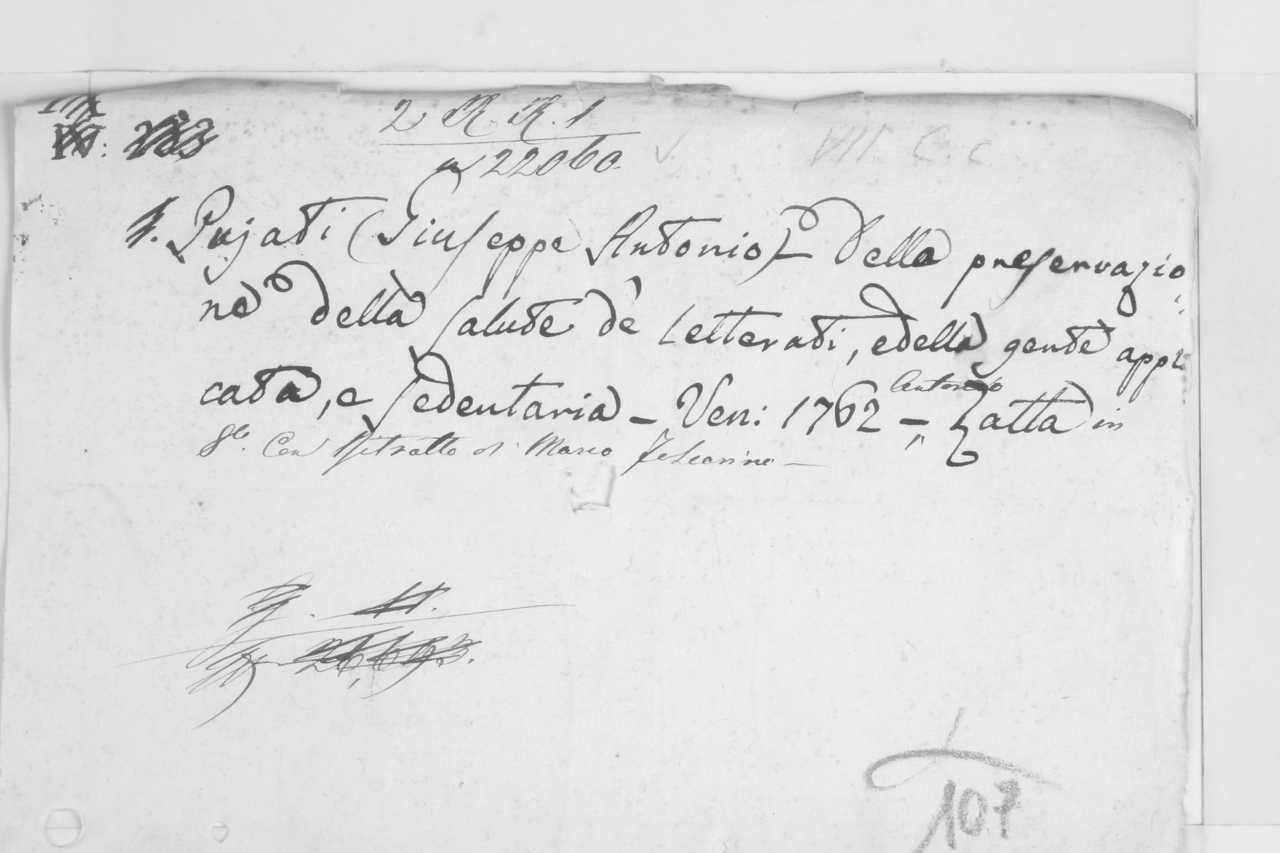 2 R. R. 1
22060
VII. C. c
Pujati (Giuseppe Antonio) Della preservazio
ne della salute de' Letterati, e della gente appli
cata, e sedentaria - Ven: 1762 - Antonio Zatta in
8º. Con Ritratto di Marco
107